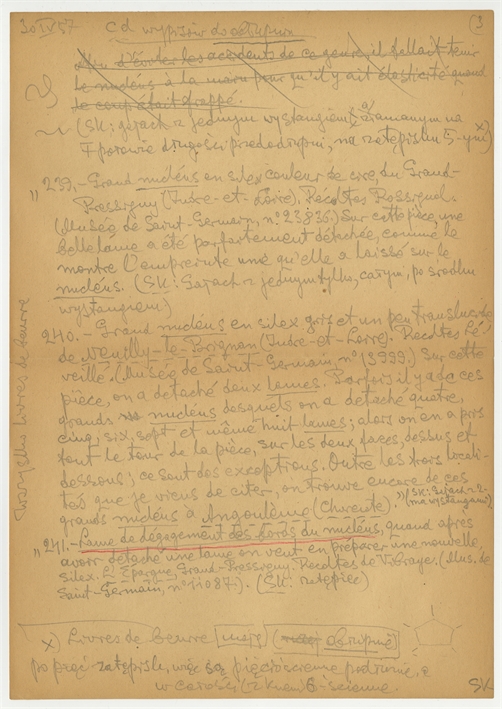 30 IV 57 Cd wypisów do obłupnia (3
Afin d'éviter les accidents de ce genre, il fallait tenir
le nucléus à la main pour qu'il y ait élasticité quand
le coup était frappé.
(SK: z jednym wystającym
"239.- Grand nucléus en silex couleur de cire, du Grand-
Pressigny (Indre-et-Loire). Récoltes Rossignol.
(Musée de Saint-Germain, n° 23836.) Sur cette pièce, une
belle lame a été parfaitement détachée, comme le
montre l'empreinte une qu'elle a laissé sur le
nucléus. (SK: z jednym tylko, całym, po środku
wystającym)
240.- Grand nucléus en silex gris et un peu translucide
de Neuilly-le- (Indre-et-Loire). Récoltes Lé-
veillé. (Musée de Saint-Germain, n° 13999.) Sur cette
pièce, on a détaché deux lames. Parfois il y a de ces
grands nucléus desquels on a détaché quatre,
cinq, six, sept et même huit lames; alors on en a pris
tout le tour de la pièce, sur les deux faces, dessus et
dessous; ce sont des exceptions. Outre les trois locali-
tés que je viens de citer, on trouve encore de ces
grands nucléus à Angoulème (Charente)."
"241.- Lame de dégagement des bords du nucléus, quand après
avoir détaché une lame on veut en préparer une nouvelle,
silex. L'Épargne, Grand-Pressigny. Récoltes de Vibraye. (Mus. de
Saint-Germain, n° 11087.). (SK: zatępiec)
Wszystko livres de beurre
x) Livres de beurre mają obłupnie
po pięć zatępisk, więc są pięciościenne podłużnie, a
w całości 6-ścienne.
SK